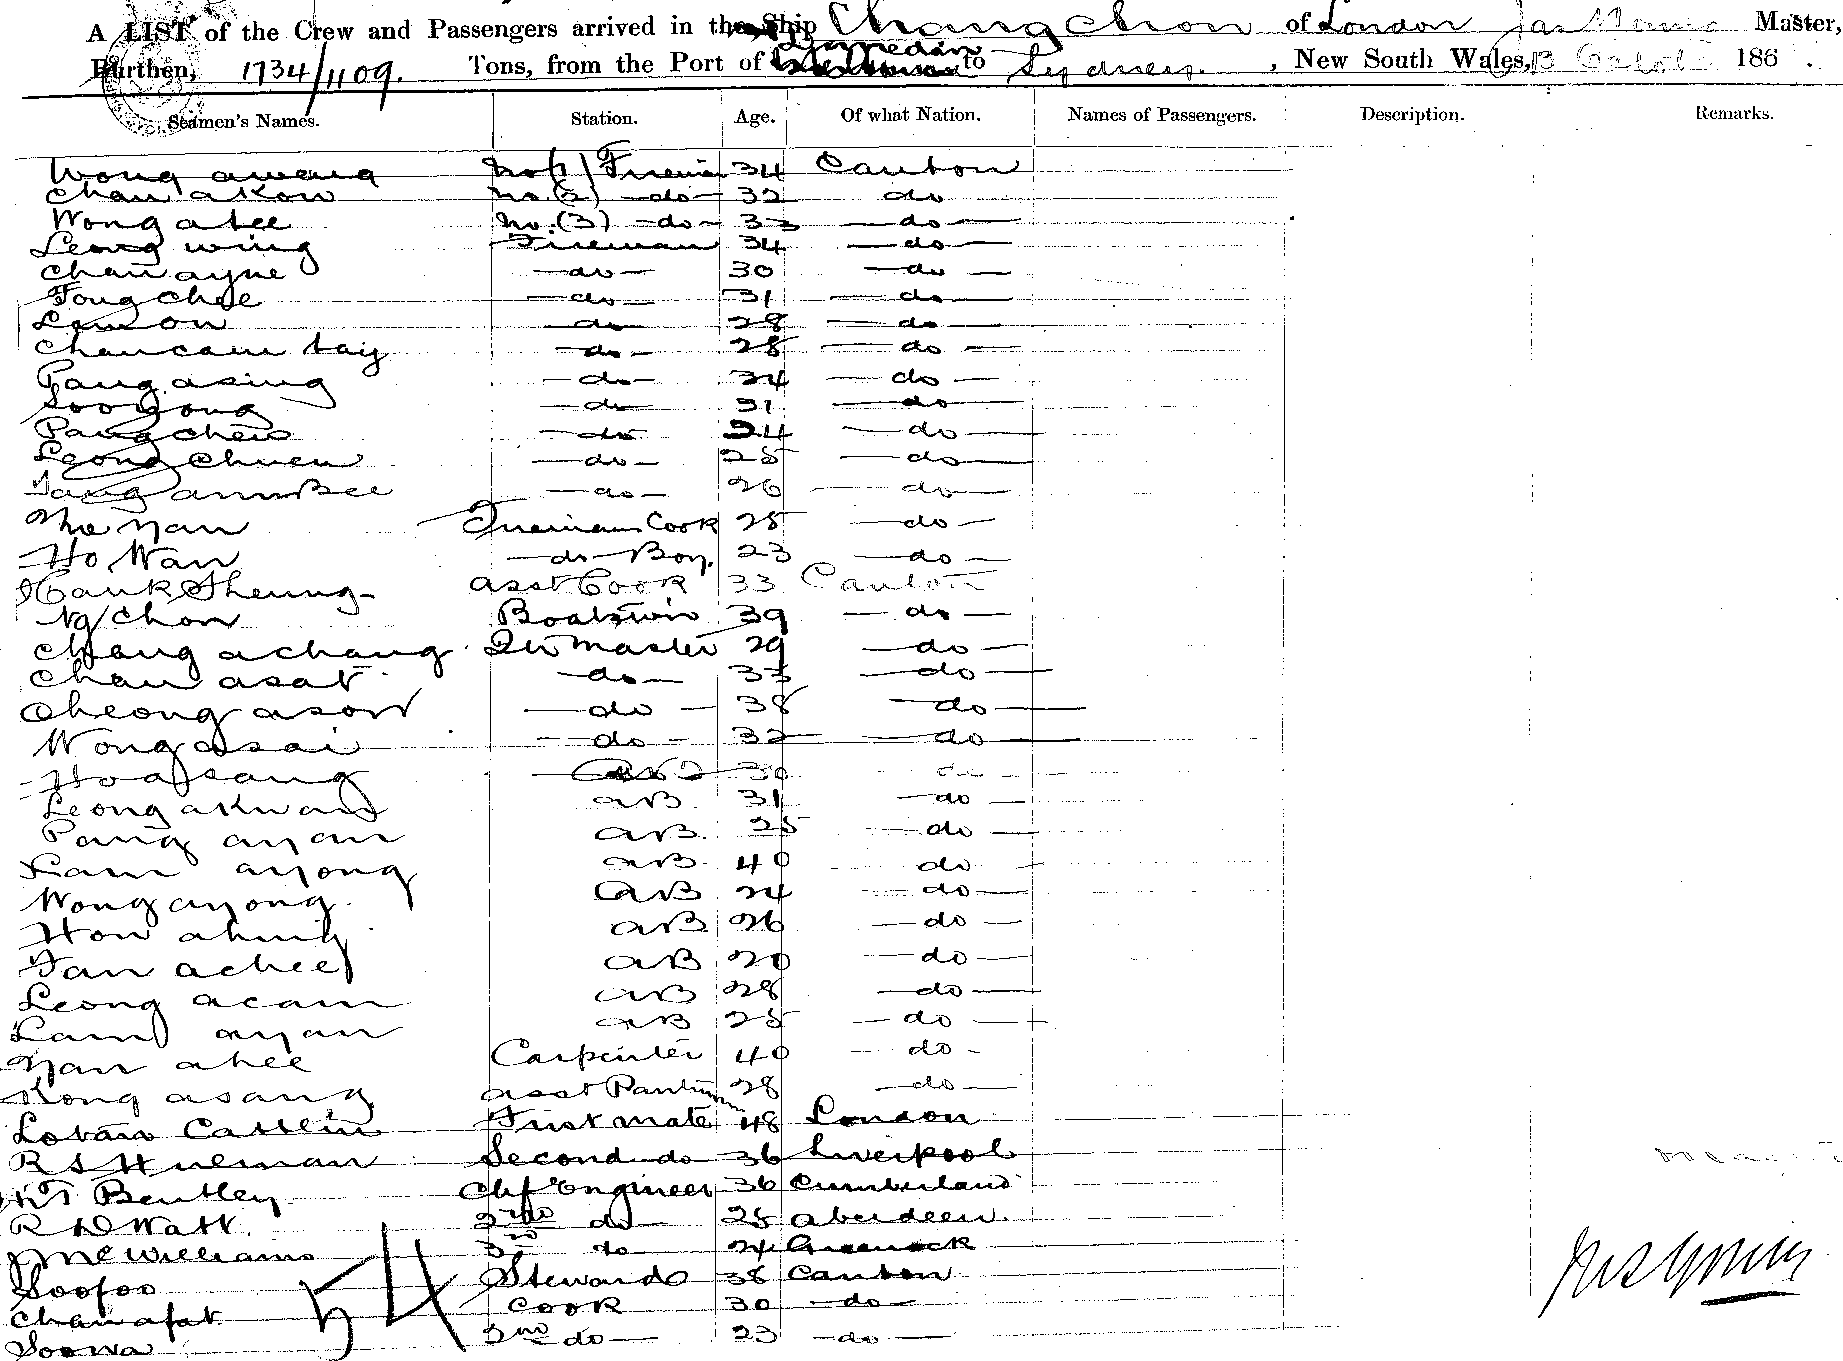 A LIST of the Crew and Passengers arrived in the Ship Changchow of London Jas Master,
Burthen, 1734/1109. Tons, from the Port of to Sydney. , New South Wales, 186 .
Seamen's Names. Station. Age. Of what Nation. Names of Passengers. Description. Remarks.
Wong awang No (1) Fireman 34 Canton
Chan akow No. (2) do 32 do
Wong ahee No. (3) do 33 do
Leong wing Fireman 34 do
Chan ayne do 30 do
Fong Choe do 31 do
Lemon do 28 do
Chancam tay do 28 do
Pang asing do 34 do
Soo Yong do 31 do
Pang chew do 24 do
Leong Chuen do 25 do
Tang do 26 do
Yan Fireman Cook 25 do
Ho Wan do Boy. 23 do
Sheung asst Cook 33 Canton
Ng Chon Boatswin 39 do
Chang achang Qr Master 29 do
Chan asat do 33 do
Cheong asow do 38 do
Wong asai do 32 do
Ho asang AB 30 do
Leong akwai AB 31 do
Pang ayan AB. 25 do
Lam ayong AB. 40 do
Wong ayong. AB 24 do
How AB 26 do
Tan achee AB 20 do
Leong acam AB 28 do
Lam ayan AB 25 do
Yan ahee Carpenter 40 do
Kong asang asst Pantryman 28 do
First mate 48 London
R S Hulman Second do 36 Liverpool
Bentley Chf Engineer 36 Cumberland
R D Watt. 2nd do 25 Aberdeen.
McWilliams 3rd do 24 Greenock
Soofoo Steward 38 Canton
Chan afat Cook 30 do
Soowa 2nd do 23 do